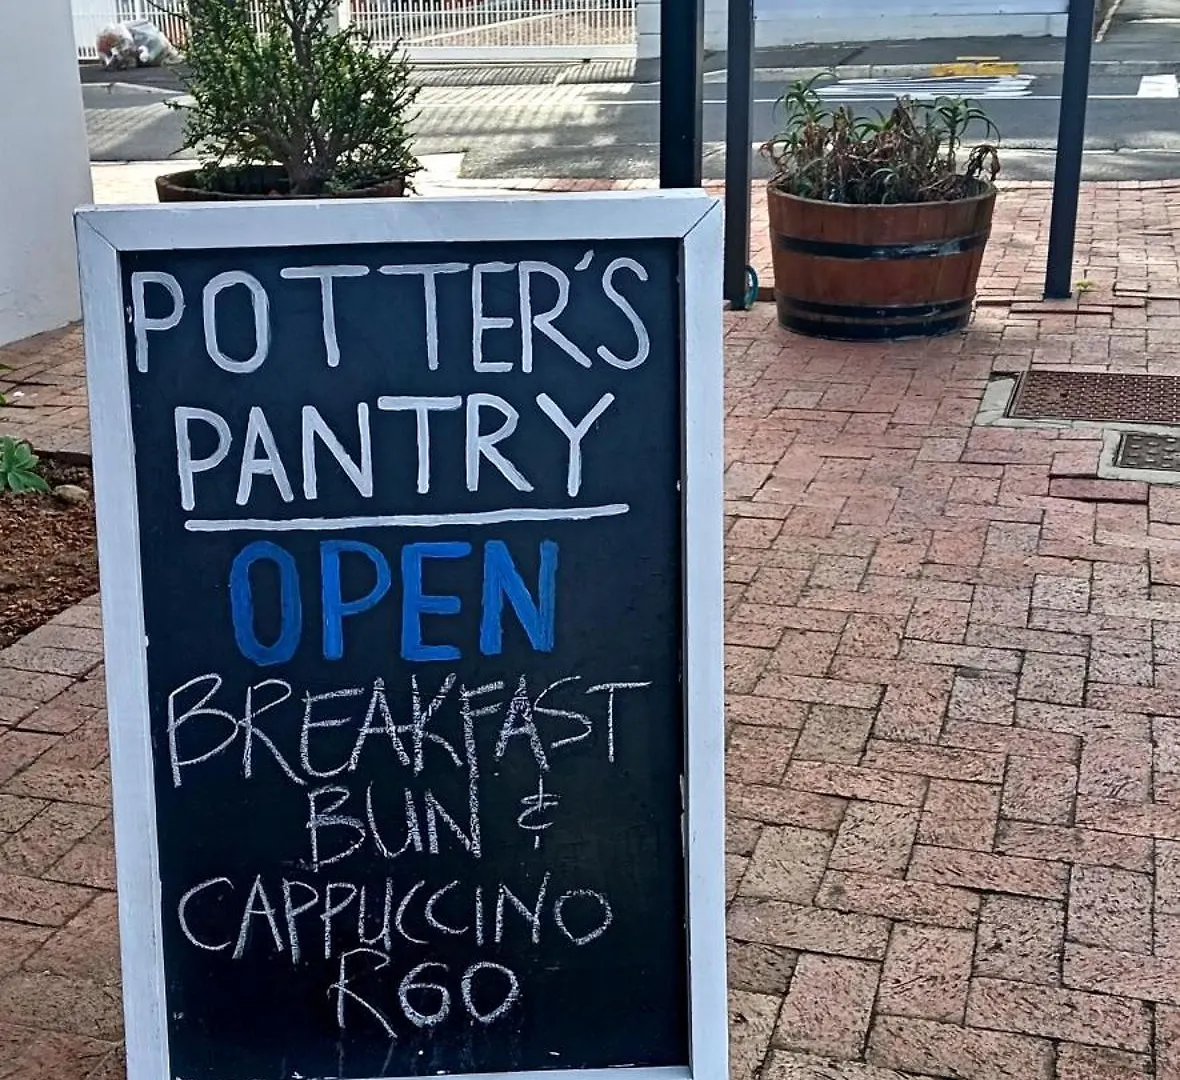 POTTER'S
PANTRY
OPEN
BREAKFAST
BUN &
CAPPUCCINO
R60